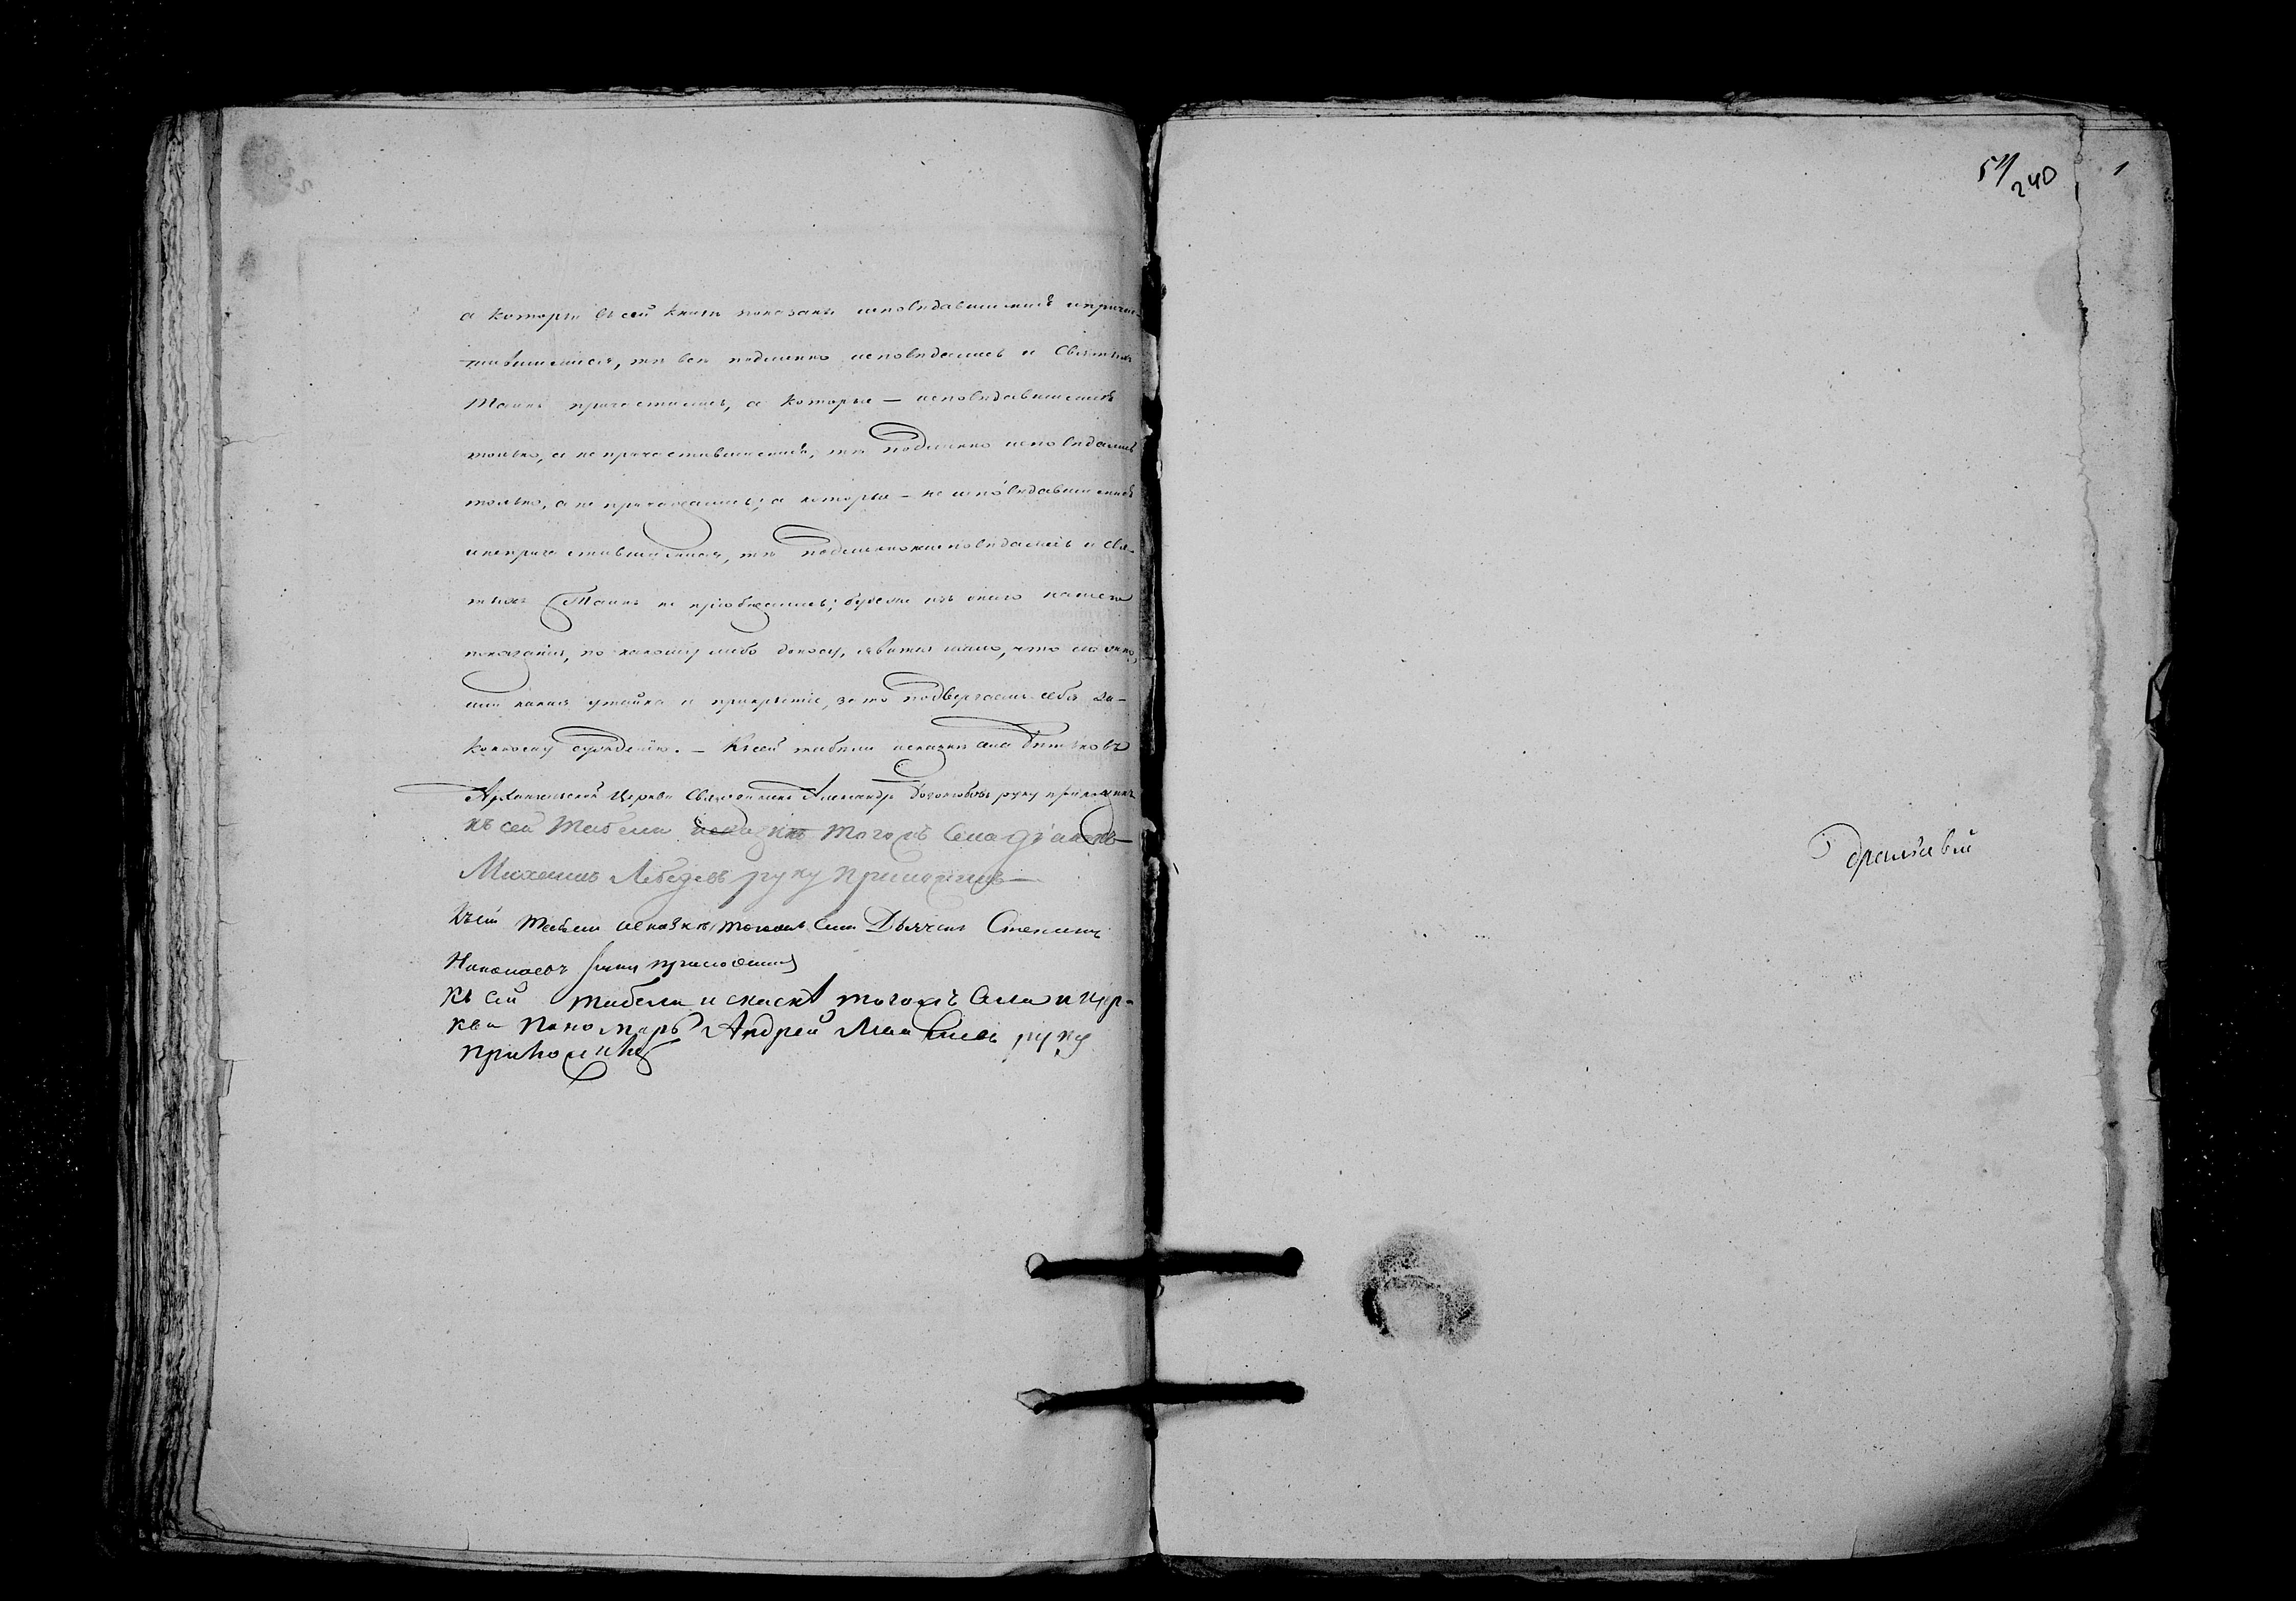 а которые въ сей книгѣ показаны исповѣдавшимись и причас-
тившимися, тѣ всѣ подлинно исповѣдались и Святыхъ
Таинъ причастились, а которые — исповѣдавшимись
только, а не причастившимись, тѣ подлинно исповѣдались
только, а не причащались; а которые — не исповѣдавшимись
и непричастившимися, тѣ подлинно неисповѣдались и Свя-
тыхъ Таинъ не пріобщались; буде же изъ онаго нашего
показанія, по какому либо доносу, явится что
или какая утайка и прикрытіе, за то подвергаемъ себя за-
конному сужденію. — Къ сей табели исказки села
Архангельской Церкви Священникъ Александръ Боголюбовъ руку приложилъ
къ сей табели тогожъ села діаконъ
Михаилъ Лебедевъ руку приложилъ
Къ сей табели исказкѣ тогожъ села Дьячекъ
Николаевъ руку приложилъ
къ сей табели и скаскѣ тогожъ села и цер-
кви Пономарь Андрей руку
приложилъ
240
1